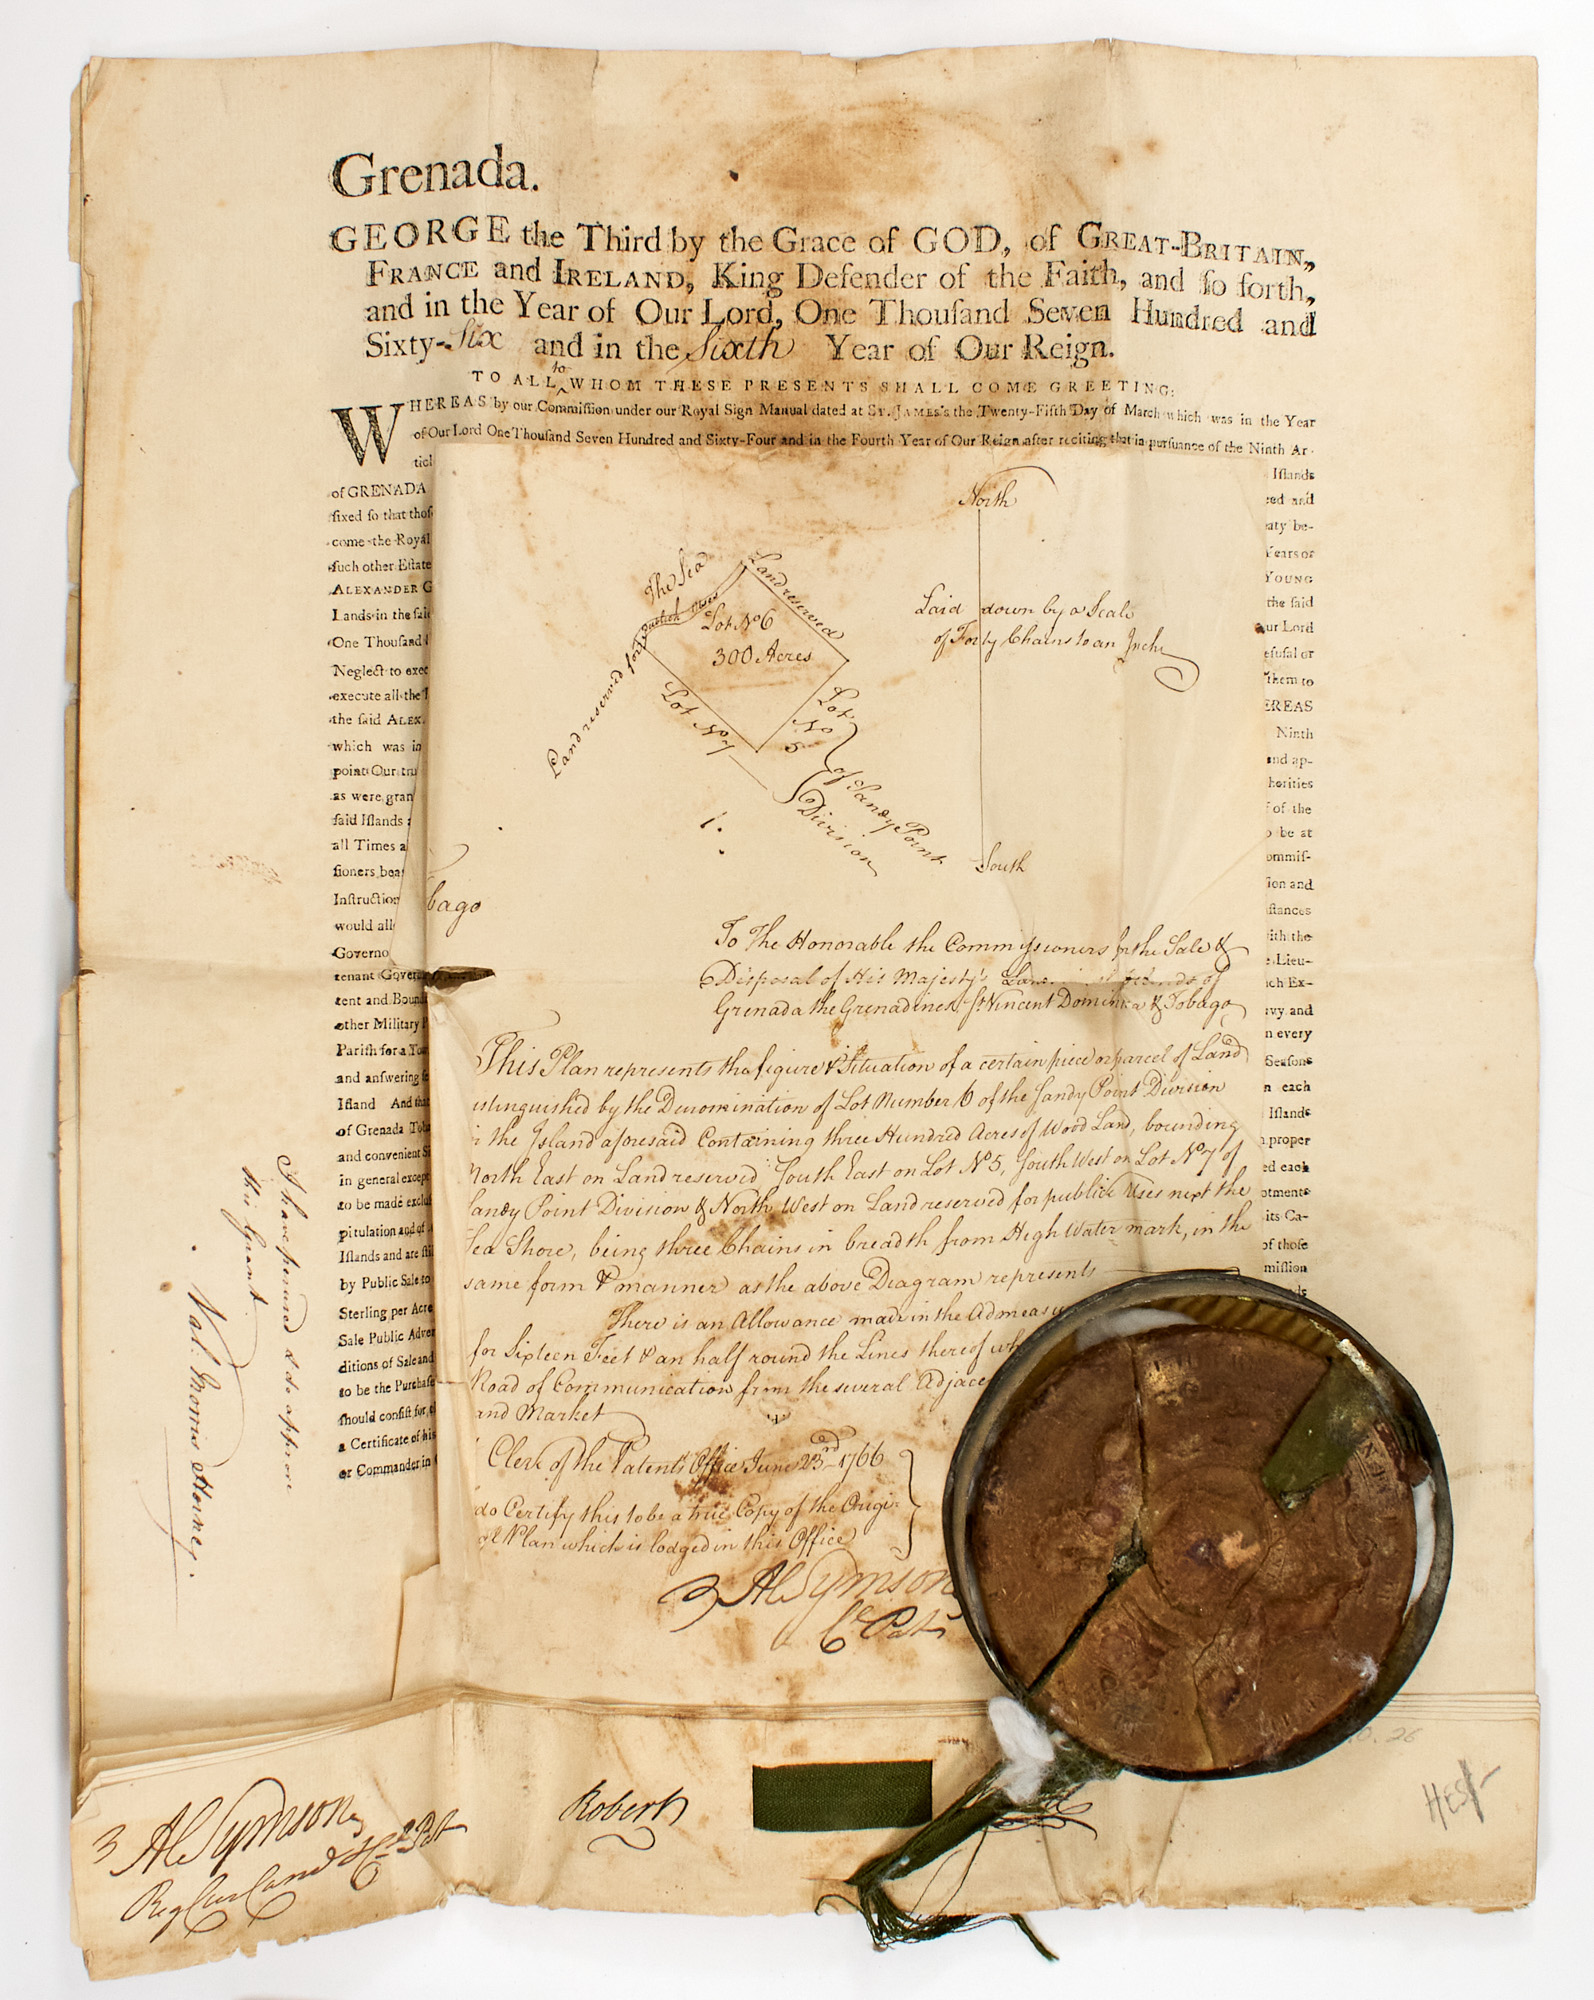 Grenada.
GEORGE the Third by the Grace of GOD, of GREAT-BRITAIN,
FRANCE and IRELAND, King Defender of the Faith, and ſo forth,
and in the Year of Our Lord, One Thouſand Seven Hundred and
Sixty-Six and in the Sixth Year of Our Reign.
TO ALL to WHOM THESE PRESENTS SHALL COME GREETING:
WHEREAS by our Commiſſion under our Royal Sign Manual dated at ST. JAMES's the Twenty-Fifth Day of March which was in the Year
of Our Lord One Thouſand Seven Hundred and Sixty-Four and in the Fourth Year of Our Reign after reciting that in purſuance of the Ninth Ar-
ticl
Iſlands
of GRENADA
ced and
fixed ſo that thoſ
eaty be-
come the Royal
Years or
ſuch other Eſtate
YOUNG
ALEXANDER G
the ſaid
Lands in the ſai
our Lord
One Thouſand
efuſal or
Neglect to exec
them to
execute all the
EREAS
the ſaid ALEX.
Ninth
which was in
and ap-
point Our tru
horities
as were gran
of the
ſaid Iſlands
o be at
all Times a
ommiſ-
ſioners bea
ſion and
Inſtruction
ſtances
would all
ith the
Governo
Lieu-
tenant Govern
ich Ex-
tent and Bound
vy and
other Military
n every
Pariſh for a Tow
Seaſons
and anſwering
n each
Iſland And that
Iſlands
of Grenada Tob
proper
and convenient
ed each
in general except
otments
to be made excluſ
its Ca-
pitulation and of
of thoſe
Iſlands and are ſtil
miſſion
by Public Sale to
Sterling per Acre
Sale Public Adver
ditions of Sale and
to be the Purchaſe
ſhould conſiſt for
a Certificate of his
or Commander in
North
The Sea
Land reserved for publick Uses
Land reserved
Lot No 6
300 Acres
Lot No 7
Lot No 5
of Sandy Point
Division
Laid down by a Scale
of Forty Chains to an Inch
South
bago
To The Honorable the Commissioners for the Sale &
Disposal of His Majesty's Islands of
Grenada the Grenadines St Vincent Dominica & Tobago
This Plan represents the figure & Situation of a certain piece or parcel of Land
istinguished by the Denomination of Lot Number 6 of the Sandy Point Division
the Island aforesaid Containing three Hundred Acres of Wood Land, bounding
North East on Land reserved South East on Lot No 5, South West on Lot No 7 of
Sandy Point Division & North West on Land reserved for publick Uses next the
Sea Shore, being three Chains in breadth from High Water mark, in the
same form & manner as the above Diagram represents
There is an Allowance made in the Admeasu
for Sixteen Feet & an half round the Lines thereof wh
Road of Communication from the several Adjace
and Market
Clerk of the Patents Office June 23rd 1766
do Certify this to be a true Copy of the Origi-
al Plan which is lodged in this Office
Al Symson
Cl Pats
I have perused & do approve
this Grant
Val: Morris
Al Symson
Robert
HES